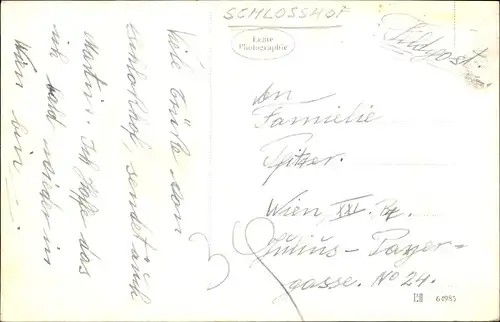 SCHLOSSHOF
Echte
Photographie
Feldpost.
Viele Grüße von
Schloßhof, sendet euch
Martin. Ich hoffe das
ich bald wieder in
Wien bin
An
Familie
Pfitzer.
Wien XXI. Bz.
Julius-Payer-
gasse. No 24.
64985